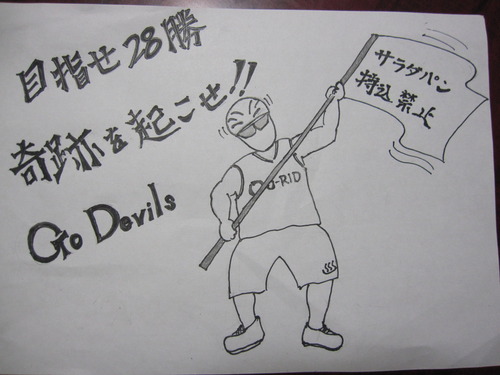 目指せ28勝
奇跡を起こせ!!
Go Devils
サラダパン
持込禁止
U-RID